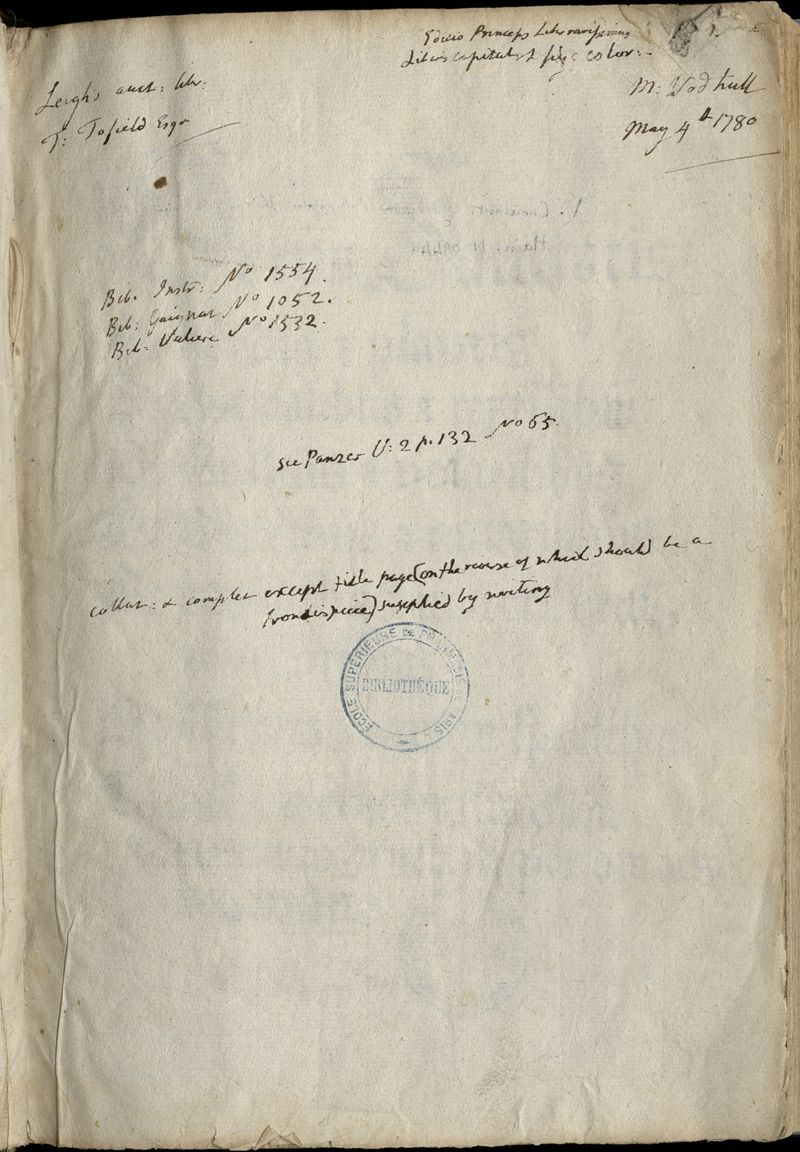 Editio Princeps Liber rarissimus
Literis capital: & fig: color:
Leighs auct: libr:
T: Tofield Esqr
M: Wodhull
May 4th 1780
Bib. Instr: No 1554.
Bib: Gaignat No 1052.
Bib: Valiere No 1532.
see Panzer V: 2 p. 132 No 65.
collat: & complet except title page (on the reverse of which should be a
frondispiece) supplied by writing
ECOLE SUPÉRIEURE DE PHARMACIE PARIS
BIBLIOTHÈQUE